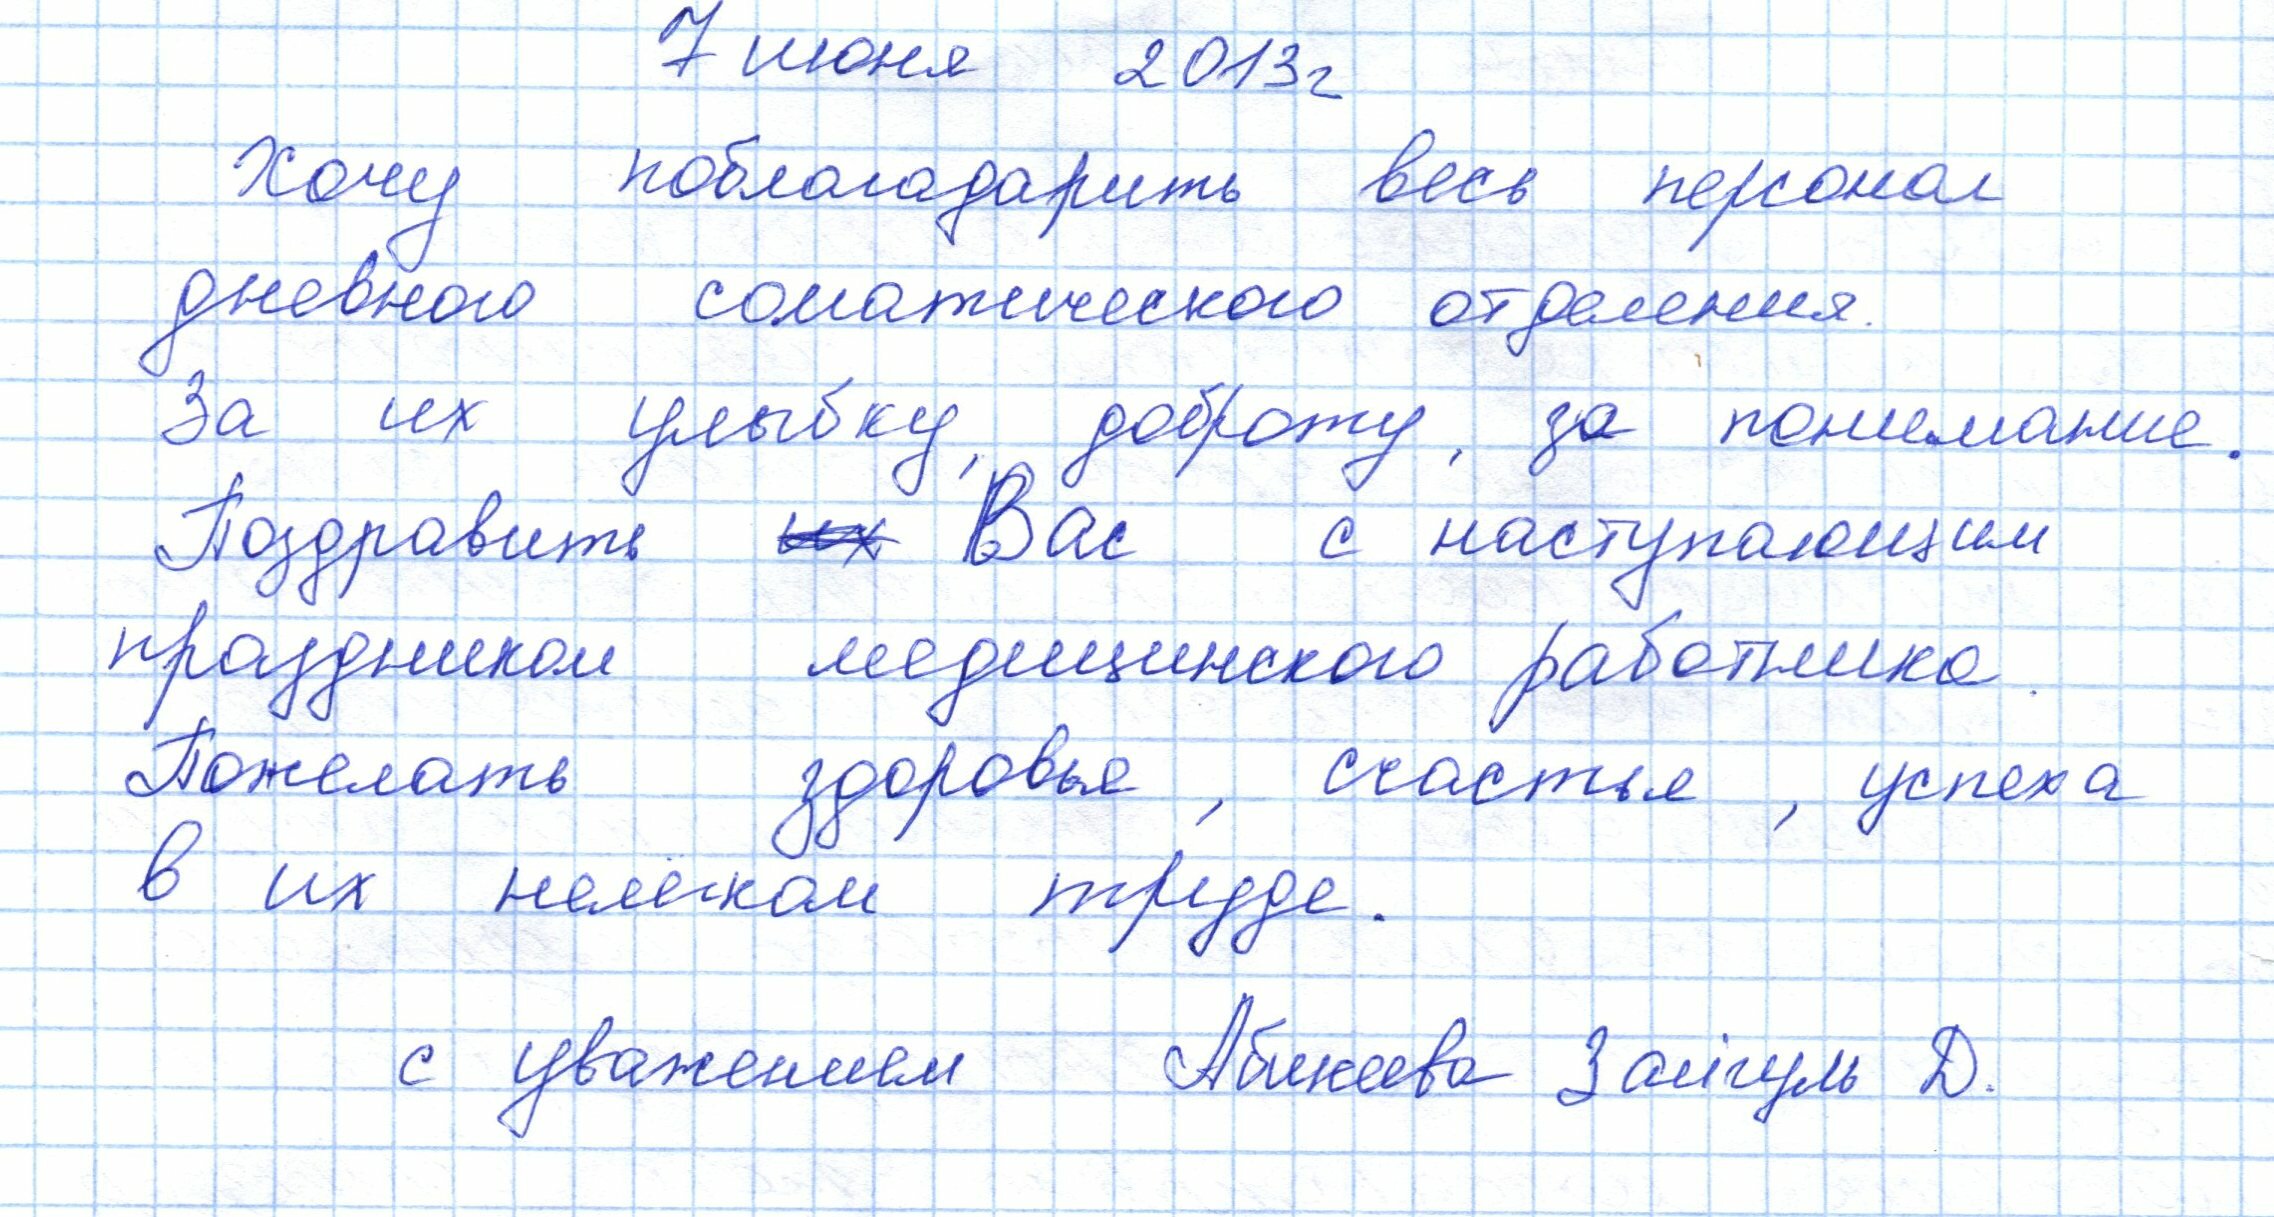 7 июня 2013г
Хочу поблагадарить весь персонал
дневного соматического отделения.
За их улыбку, доброту, за понимание.
Поздравить их Вас с наступающим
праздником медицинского работника.
Пожелать здоровья, счастья, успеха
в их нелегком труде.
с уважением Абикеева Зайгуль Д.